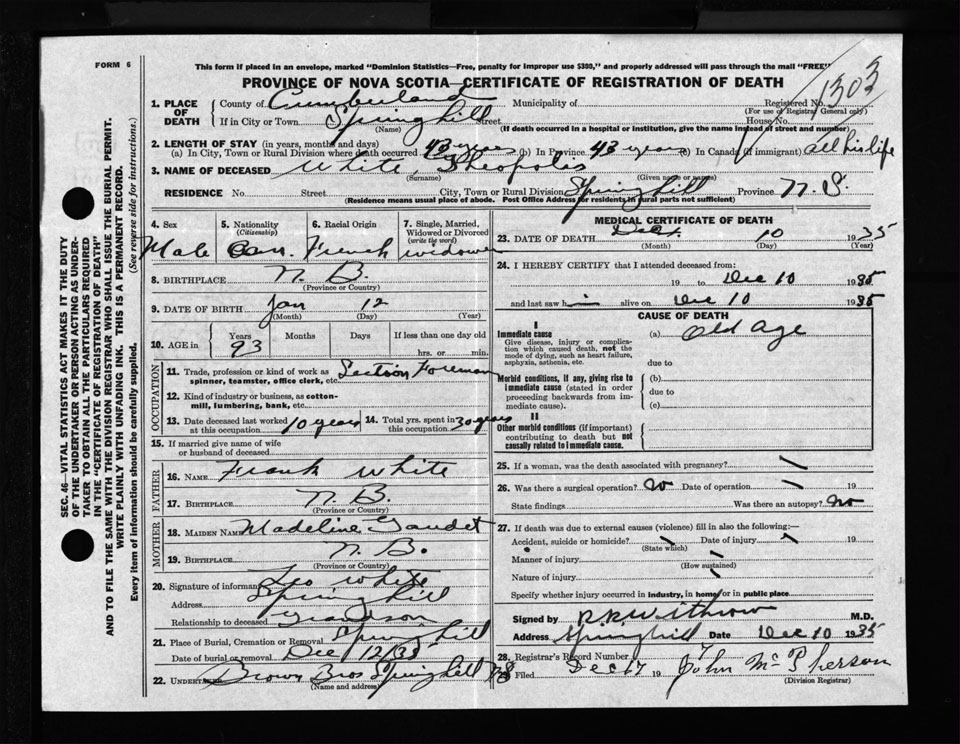 FORM 6
This form if placed in an envelope, marked "Dominion Statistics—Free, penalty for improper use $300," and properly addressed will pass through the mail "FREE"
PROVINCE OF NOVA SCOTIA—CERTIFICATE OF REGISTRATION OF DEATH
1303
1. PLACE OF DEATH
County of Cumberland Municipality of Registered No.
(For use of Registrar General only)
If in City or Town Springhill Street House No.
(Name) (If death occurred in a hospital or institution, give the name instead of street and number)
2. LENGTH OF STAY (in years, months and days)
(a) In City, Town or Rural Division where death occurred 43 years (b) In Province 43 years (c) In Canada (if immigrant) all his life
3. NAME OF DECEASED White, Theopolis
(Surname) (Given name or names)
RESIDENCE No. Street City, Town or Rural Division Springhill Province N. S.
(Residence means usual place of abode. Post Office Address for residents in rural parts not sufficient)
4. Sex 5. Nationality (Citizenship) 6. Racial Origin 7. Single, Married, Widowed or Divorced (write the word)
Male Can. French widower
8. BIRTHPLACE N. B.
(Province or Country)
9. DATE OF BIRTH Jan 12
(Month) (Day) (Year)
10. AGE in Years Months Days If less than one day old
93 hrs. or min.
OCCUPATION
11. Trade, profession or kind of work as spinner, teamster, office clerk, etc. Section Foreman
12. Kind of industry or business, as cotton-mill, lumbering, bank, etc.
13. Date deceased last worked at this occupation 10 years 14. Total yrs. spent in this occupation 30 years
15. If married give name of wife or husband of deceased
FATHER
16. NAME Frank White
17. BIRTHPLACE N. B.
(Province or Country)
MOTHER
18. MAIDEN NAME Madeline Gaudet
19. BIRTHPLACE N. B.
(Province or Country)
20. Signature of informant Leo White
Address Springhill
Relationship to deceased
21. Place of Burial, Cremation or Removal Springhill
Date of burial or removal Dec 12/35
22. UNDERTAKER Brown Bros Springhill NS
(Name and address)
MEDICAL CERTIFICATE OF DEATH
23. DATE OF DEATH 10 1935
(Month) (Day) (Year)
24. I HEREBY CERTIFY that I attended deceased from:
19 to Dec 10 1935
and last saw him alive on Dec 10 1935
CAUSE OF DEATH
I
Immediate cause (a) Old Age
Give disease, injury or complication which caused death, not the mode of dying, such as heart failure, asphyxia, asthenia, etc.
due to
Morbid conditions, if any, giving rise to immediate cause (stated in order proceeding backwards from immediate cause).
(b)
due to
(c)
II
Other morbid conditions (if important) contributing to death but not causally related to immediate cause.
25. If a woman, was the death associated with pregnancy?
26. Was there a surgical operation? No Date of operation 19
State findings Was there an autopsy? No
27. If death was due to external causes (violence) fill in also the following:—
Accident, suicide or homicide? Date of injury 19
(State which)
Manner of injury
(How sustained)
Nature of injury
Specify whether injury occurred in industry, in home, or in public place
Signed by R. R. Withrow M.D.
Address Springhill Date Dec 10 1935
28. Registrar's Record Number 7
29. Filed Dec 17 19 John McPherson
(Division Registrar)
SEC. 46—VITAL STATISTICS ACT MAKES IT THE DUTY
OF THE UNDERTAKER OR PERSON ACTING AS UNDER-
TAKER TO OBTAIN ALL THE PARTICULARS REQUIRED
IN THE "CERTIFICATE OF REGISTRATION OF DEATH"
AND TO FILE THE SAME WITH THE DIVISION REGISTRAR WHO SHALL ISSUE THE BURIAL PERMIT.
WRITE PLAINLY WITH UNFADING INK. THIS IS A PERMANENT RECORD.
Every item of information should be carefully supplied. (See reverse side for instructions.)